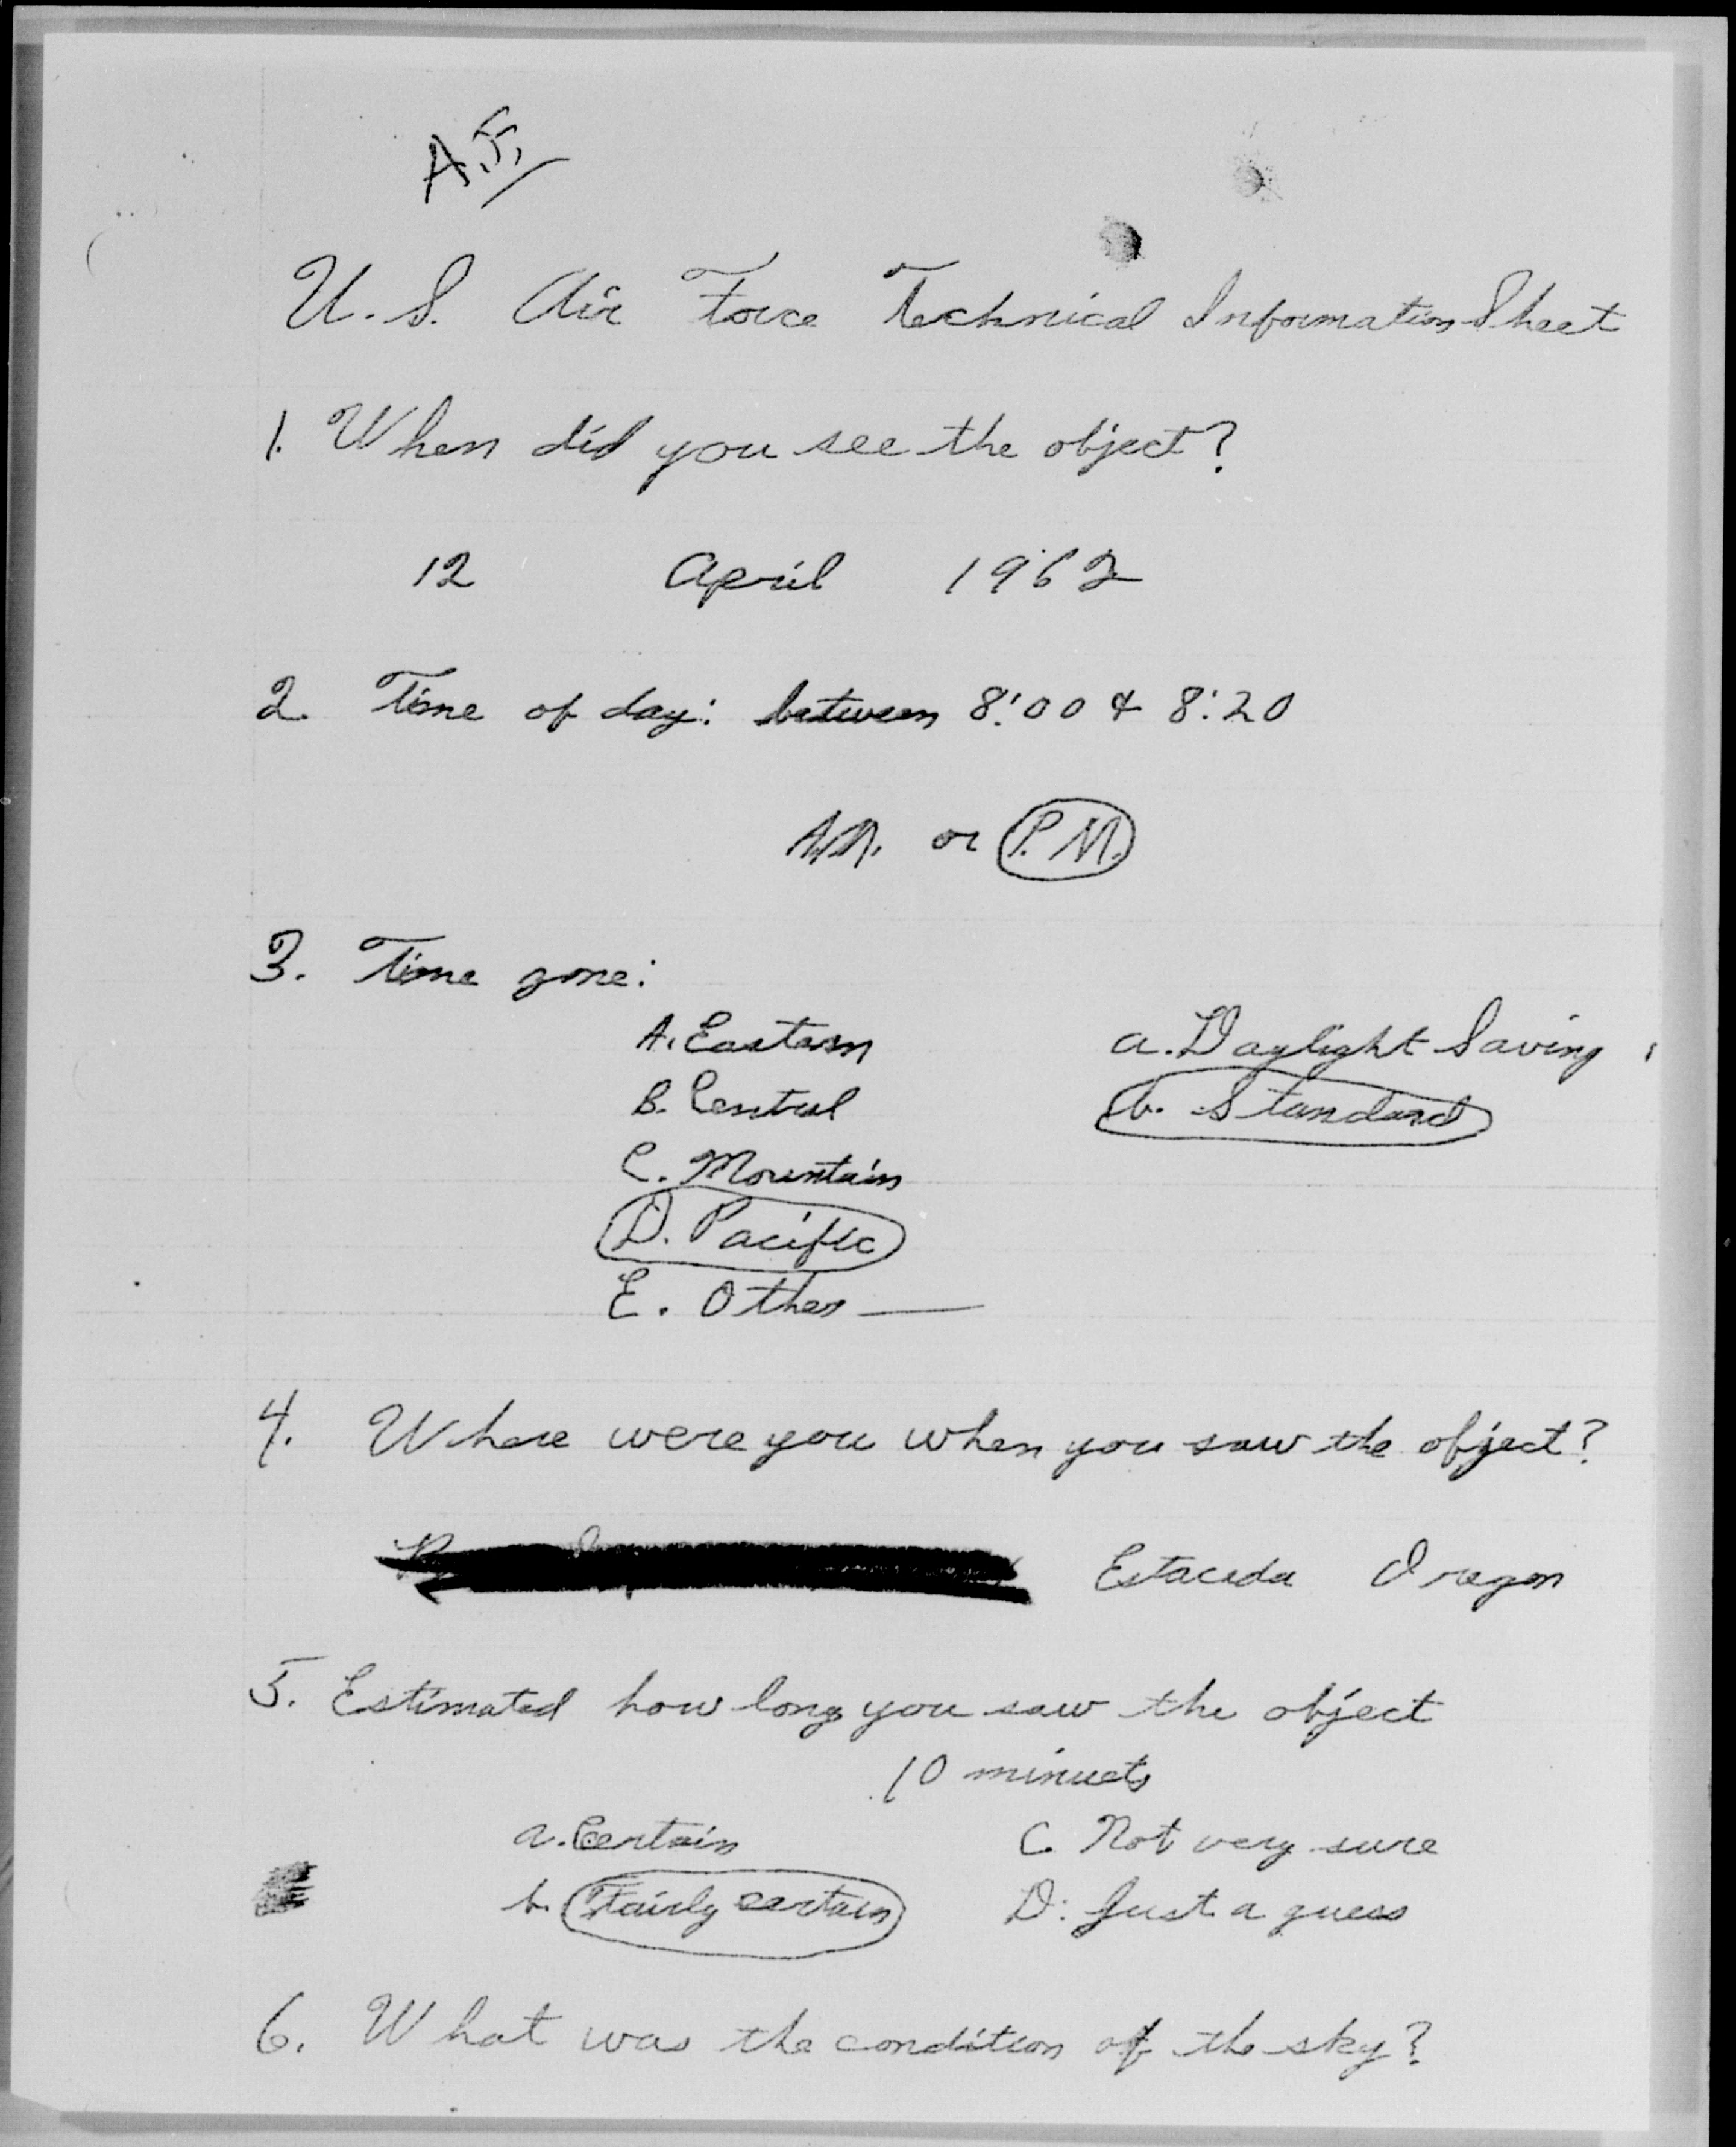 A.F.
U. S. Air Force Technical Information Sheet
1. When did you see the object?
12 April 1962
2. Time of day: between 8:00 & 8:20
A.M. or P.M.
3. Time zone:
A. Eastern a. Daylight Saving
B. Central b. Standard
C. Mountain
D. Pacific
E. Other
4. Where were you when you saw the object?
Estacada Oregon
5. Estimated how long you saw the object
10 minuets
a. Certain C. Not very sure
b. Fairly certain D. Just a guess
6. What was the condition of the sky?